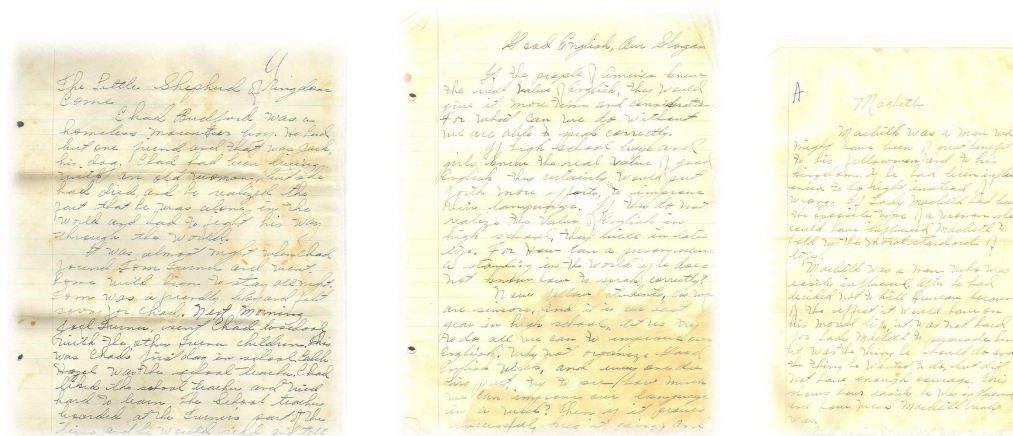 The Little Shepherd of Kingdom
Come
Chad Budford was a
homeless mountain boy. He had
but one friend and that was Jack,
his dog. Chad had been living
with an old woman, but she
had died, and he realized the
fact that he was alone in the
world and had to fight his way
through the world.
It was almost night when Chad
found Tom Turner and went
home with him to stay all night.
Tom was a friendly man and felt
sorry for Chad. Next morning
Joel Turner, sent Chad to school
with the other Turner children. This
was Chad's first day in school. Caleb
Hazel was the school teacher. Chad
liked the school teacher and tried
hard to learn. The school teacher
boarded at the Turners part of the
time and he would read and tell
Good English, Our Slogan
If the people of America knew
the real value of English, they would
give it more time and consideration
For what can we do without
we are able to speak correctly.
If high school boys and
girls knew the real value of good
English they certainly would put
forth more efforts, to improve
their language. If they do not
realize the value of English in
high school, they will in later
life. For how can a person have
a standing in the world if he does
not know how to speak correctly?
Now fellow students, as we
are seniors, and it is our last
year in high school, let us try
to do all we can to improve our
English. Why not organize Good
English Week, and every one do
his part. Try to see how much
we can improve our language
in a week? Then if it proves
successful, keep it going and
A
Macbeth
Macbeth was a man who
might have been of great benefit
to his fellowmen and to his
kingdom, if he had been
to do right instead of
wrong. If Lady Macbeth had been
the opposite type of a woman she
could have influenced Macbeth to
hold to the moral standards of
life.
Macbeth was a man who was
easily influenced. After he had
decided not to kill Duncan because
of the effect it would have on
his moral life, it was not hard
for Lady Macbeth to persuade him
it was the thing he should do and
the thing he wanted to do, but did
not have enough courage. This
shows how easily he was influenced
and how weak Macbeth really
was.